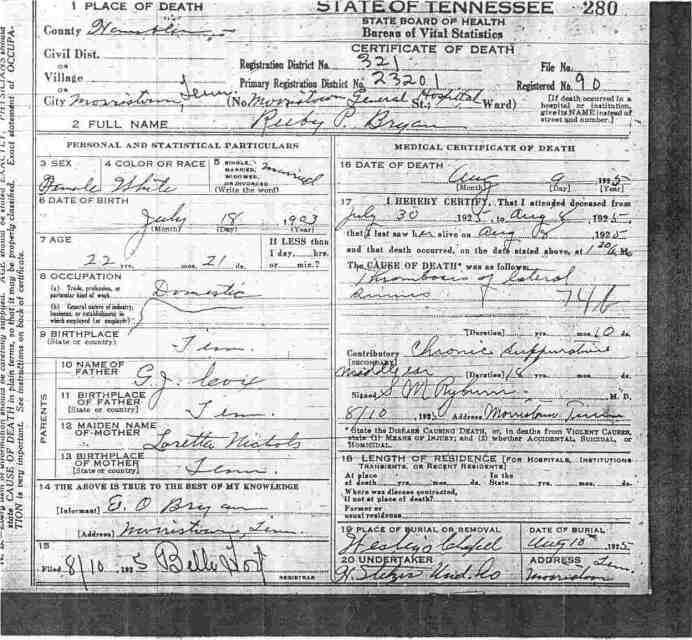 1 PLACE OF DEATH
STATE OF TENNESSEE 280
STATE BOARD OF HEALTH
Bureau of Vital Statistics
CERTIFICATE OF DEATH
County Hamblen
Civil Dist.
OR
Village
OR
City Morristown, Tenn.
Registration District No. 321
File No.
Primary Registration District No. 23201
Registered No. 90
(No. Morristown General Hospital St.; Ward)
[If death occurred in a
hospital or institution,
give its NAME instead of
street and number.]
2 FULL NAME Ruby P. Bryan
PERSONAL AND STATISTICAL PARTICULARS
3 SEX
Female
4 COLOR OR RACE
White
5 SINGLE,
MARRIED,
WIDOWED,
OR DIVORCED
(Write the word)
married
6 DATE OF BIRTH
July 18, 1903
(Month) (Day) (Year)
7 AGE
22 yrs. mos. 21 ds.
If LESS than
1 day, hrs.
or min.?
8 OCCUPATION
(a) Trade, profession, or
particular kind of work
Domestic
(b) General nature of industry,
business, or establishment in
which employed (or employer)
9 BIRTHPLACE
(State or country)
Tenn
PARENTS
10 NAME OF
FATHER
G. J.
11 BIRTHPLACE
OF FATHER
[State or country]
Tenn.
12 MAIDEN NAME
OF MOTHER
Loretta Nichols
13 BIRTHPLACE
OF MOTHER
[State or country]
Tenn.
14 THE ABOVE IS TRUE TO THE BEST OF MY KNOWLEDGE
[Informant] E. O Bryan
[Address] Morristown, Tenn.
15
Filed 8/10, 1925 Belle
REGISTRAR
MEDICAL CERTIFICATE OF DEATH
16 DATE OF DEATH
Aug 9 1925
(Month) (Day) (Year)
17 I HEREBY CERTIFY, That I attended deceased from
July 30 1925, to Aug 8, 1925,
that I last saw her alive on Aug 8, 1925
and that death occurred, on the date stated above, at 1 30 a M.
The CAUSE OF DEATH* was as follows:
Thrombosis of lateral
sinus 74b
(Duration) yrs. mos. 10 ds.
Contributory Chronic suppurative
[SECONDARY]
middle ear (Duration) 18 yrs. mos. ds.
Signed S M Ryburn M. D.
8/10, 1925 Address Morristown Tenn
* State the DISEASE CAUSING DEATH, or, in deaths from VIOLENT CAUSES,
state (1) MEANS OF INJURY; and (2) whether ACCIDENTAL, SUICIDAL, or
HOMICIDAL.
18 LENGTH OF RESIDENCE [FOR HOSPITALS, INSTITUTIONS
TRANSIENTS, OR RECENT RESIDENTS]
At place In the
of death yrs. mos. ds. State yrs. mos. ds.
Where was disease contracted,
if not at place of death?
Former or
usual residence
19 PLACE OF BURIAL OR REMOVAL
Wesleys Chapel
DATE OF BURIAL
Aug 10, 1925
20 UNDERTAKER
Und. Co
ADDRESS
Morristown Tenn.
state CAUSE OF DEATH in plain terms, so that it may be properly classified. Exact statement of OCCUPA-
TION is very important. See instructions on back of certificate.